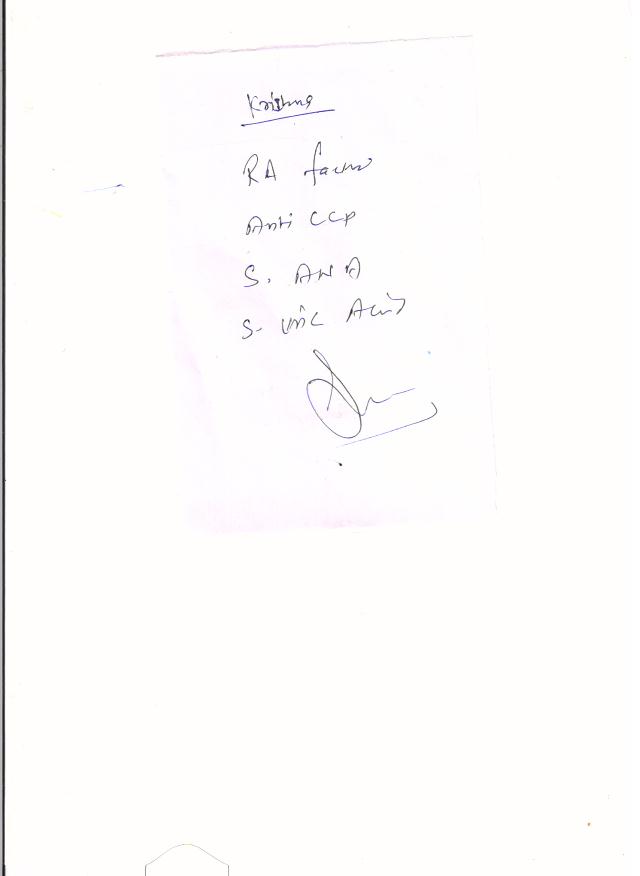 Krishna
RA factor
Anti CCP
S. ANA
S. Uric Acid